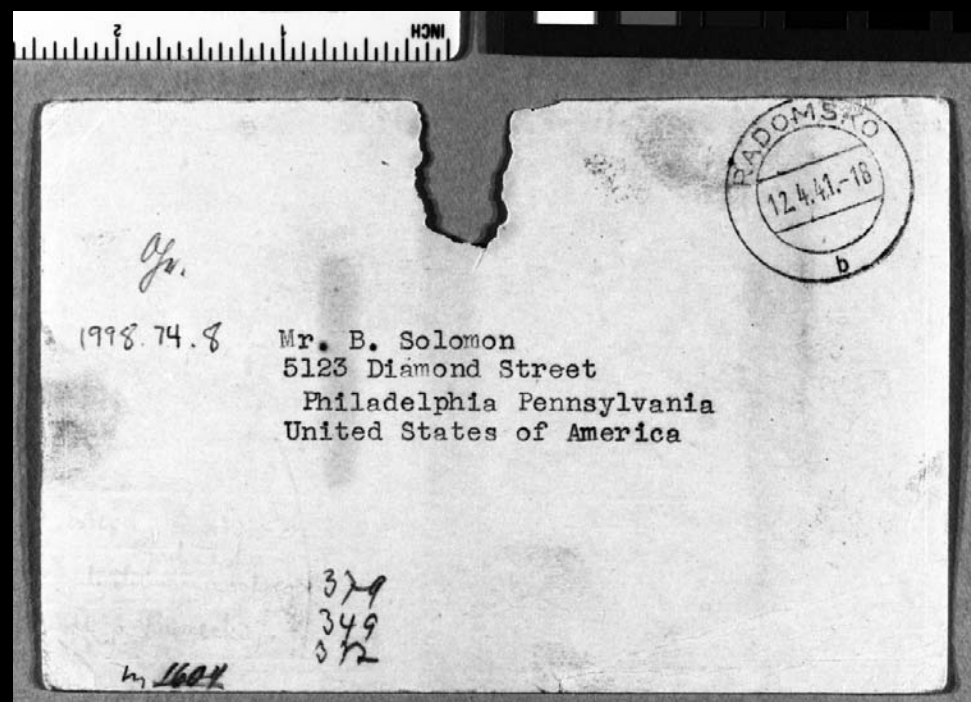 INCH
1
2
RADOMSKO
12.4.41.-18
b
1998.74.8
Mr. B. Solomon
5123 Diamond Street
Philadelphia Pennsylvania
United States of America
349